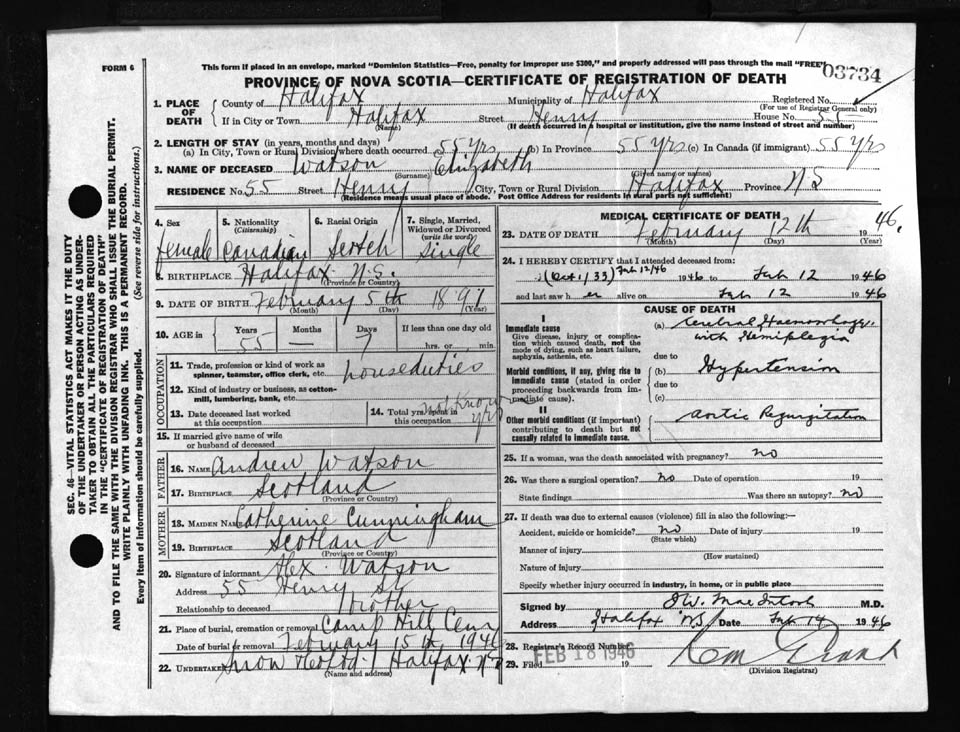 FORM 6
This form if placed in an envelope, marked "Dominion Statistics—Free, penalty for improper use $300," and properly addressed will pass through the mail "FREE"
03734
PROVINCE OF NOVA SCOTIA—CERTIFICATE OF REGISTRATION OF DEATH
1. PLACE OF DEATH
County of Halifax Municipality of Halifax Registered No.
(For use of Registrar General only)
If in City or Town Halifax Street Henry House No. 55
(Name) (If death occurred in a hospital or institution, give the name instead of street and number)
2. LENGTH OF STAY (in years, months and days)
(a) In City, Town or Rural Division where death occurred 55 yrs (b) In Province 55 yrs (c) In Canada (if immigrant) 55 yrs
3. NAME OF DECEASED Watson Elizabeth
(Surname) (Given name or names)
RESIDENCE No. 55 Street Henry City, Town or Rural Division Halifax Province N.S
(Residence means usual place of abode. Post Office Address for residents in rural parts not sufficient)
4. Sex female
5. Nationality (Citizenship) Canadian
6. Racial Origin Scotch
7. Single, Married, Widowed or Divorced (write the word) Single
8. BIRTHPLACE Halifax N.S.
(Province or Country)
9. DATE OF BIRTH February 5th 1891
(Month) (Day) (Year)
10. AGE in Years 55 Months — Days 7 If less than one day old hrs. or min.
OCCUPATION
11. Trade, profession or kind of work as spinner, teamster, office clerk, etc. house duties
12. Kind of industry or business, as cotton-mill, lumbering, bank, etc.
13. Date deceased last worked at this occupation
14. Total yrs. spent in this occupation not known yrs
15. If married give name of wife or husband of deceased
FATHER
16. NAME Andrew Watson
17. BIRTHPLACE Scotland
(Province or Country)
MOTHER
18. MAIDEN NAME Catherine Cunningham
19. BIRTHPLACE Scotland
(Province or Country)
20. Signature of informant Alex. Watson
Address 55 Henry St
Relationship to deceased brother
21. Place of burial, cremation or removal Camp Hill Cem
Date of burial or removal February 15th 1946
22. UNDERTAKER Halifax N.S
(Name and address)
MEDICAL CERTIFICATE OF DEATH
23. DATE OF DEATH February 12th 1946.
(Month) (Day) (Year)
24. I HEREBY CERTIFY that I attended deceased from:
(Oct. 1/33) Feb 12/46 1946 to Feb 12 1946
and last saw her alive on Feb 12 1946
CAUSE OF DEATH
I
Immediate cause
Give disease, injury or complication which caused death, not the mode of dying, such as heart failure, asphyxia, asthenia, etc.
(a) Cerebral Haemorrhage with Hemiplegia
due to
Morbid conditions, if any, giving rise to immediate cause (stated in order proceeding backwards from immediate cause).
(b) Hypertension
due to
(c)
II
Other morbid conditions (if important) contributing to death but not causally related to immediate cause.
Aortic Regurgitation
25. If a woman, was the death associated with pregnancy? no
26. Was there a surgical operation? no Date of operation 19
State findings Was there an autopsy? no
27. If death was due to external causes (violence) fill in also the following:—
Accident, suicide or homicide? no Date of injury 19
(State which)
Manner of injury
(How sustained)
Nature of injury
Specify whether injury occurred in industry, in home, or in public place
Signed by W. MacIntosh M.D.
Address Halifax NS Date Feb 14 1946
28. Registrar's Record Number
29. Filed FEB 18 1946 19
(Division Registrar)
SEC. 46—VITAL STATISTICS ACT MAKES IT THE DUTY
OF THE UNDERTAKER OR PERSON ACTING AS UNDER-
TAKER TO OBTAIN ALL THE PARTICULARS REQUIRED
IN THE "CERTIFICATE OF REGISTRATION OF DEATH"
AND TO FILE THE SAME WITH THE DIVISION REGISTRAR WHO SHALL ISSUE THE BURIAL PERMIT.
WRITE PLAINLY WITH UNFADING INK. THIS IS A PERMANENT RECORD.
Every item of information should be carefully supplied. (See reverse side for instructions.)